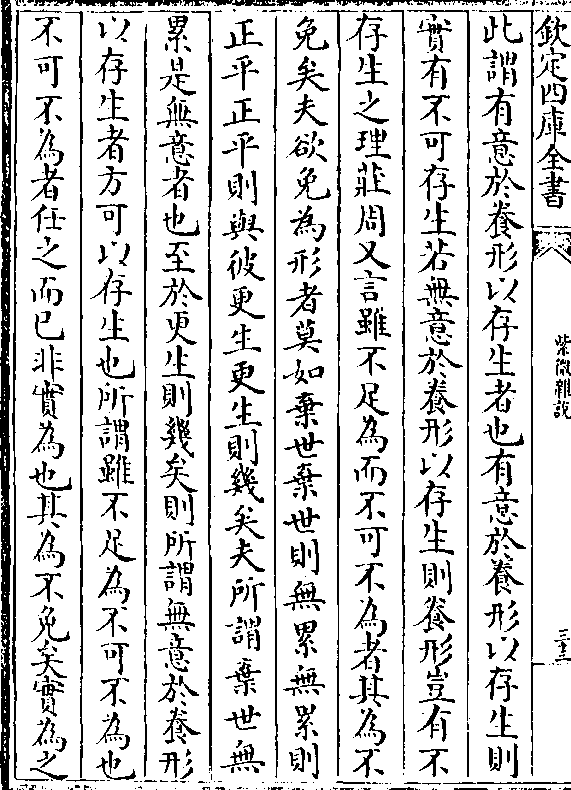 欽定四庫全書
紫微雜説
三十三
此謂有意於養形以存生者也有意於養形以存生則
實有不可存生若無意於養形以存生則養形豈有不
存生之理莊周又言雖不足為而不可不為者其為不
免矣夫欲免為形者莫如棄世棄世則無累無累則
正平正平則與彼更生更生則幾矣夫所謂棄世無
累是無意者也至於更生則幾矣則所謂無意於養形
以存生者方可以存生也所謂雖不足為不可不為也
不可不為者任之而已非實為也其為不免矣實為之